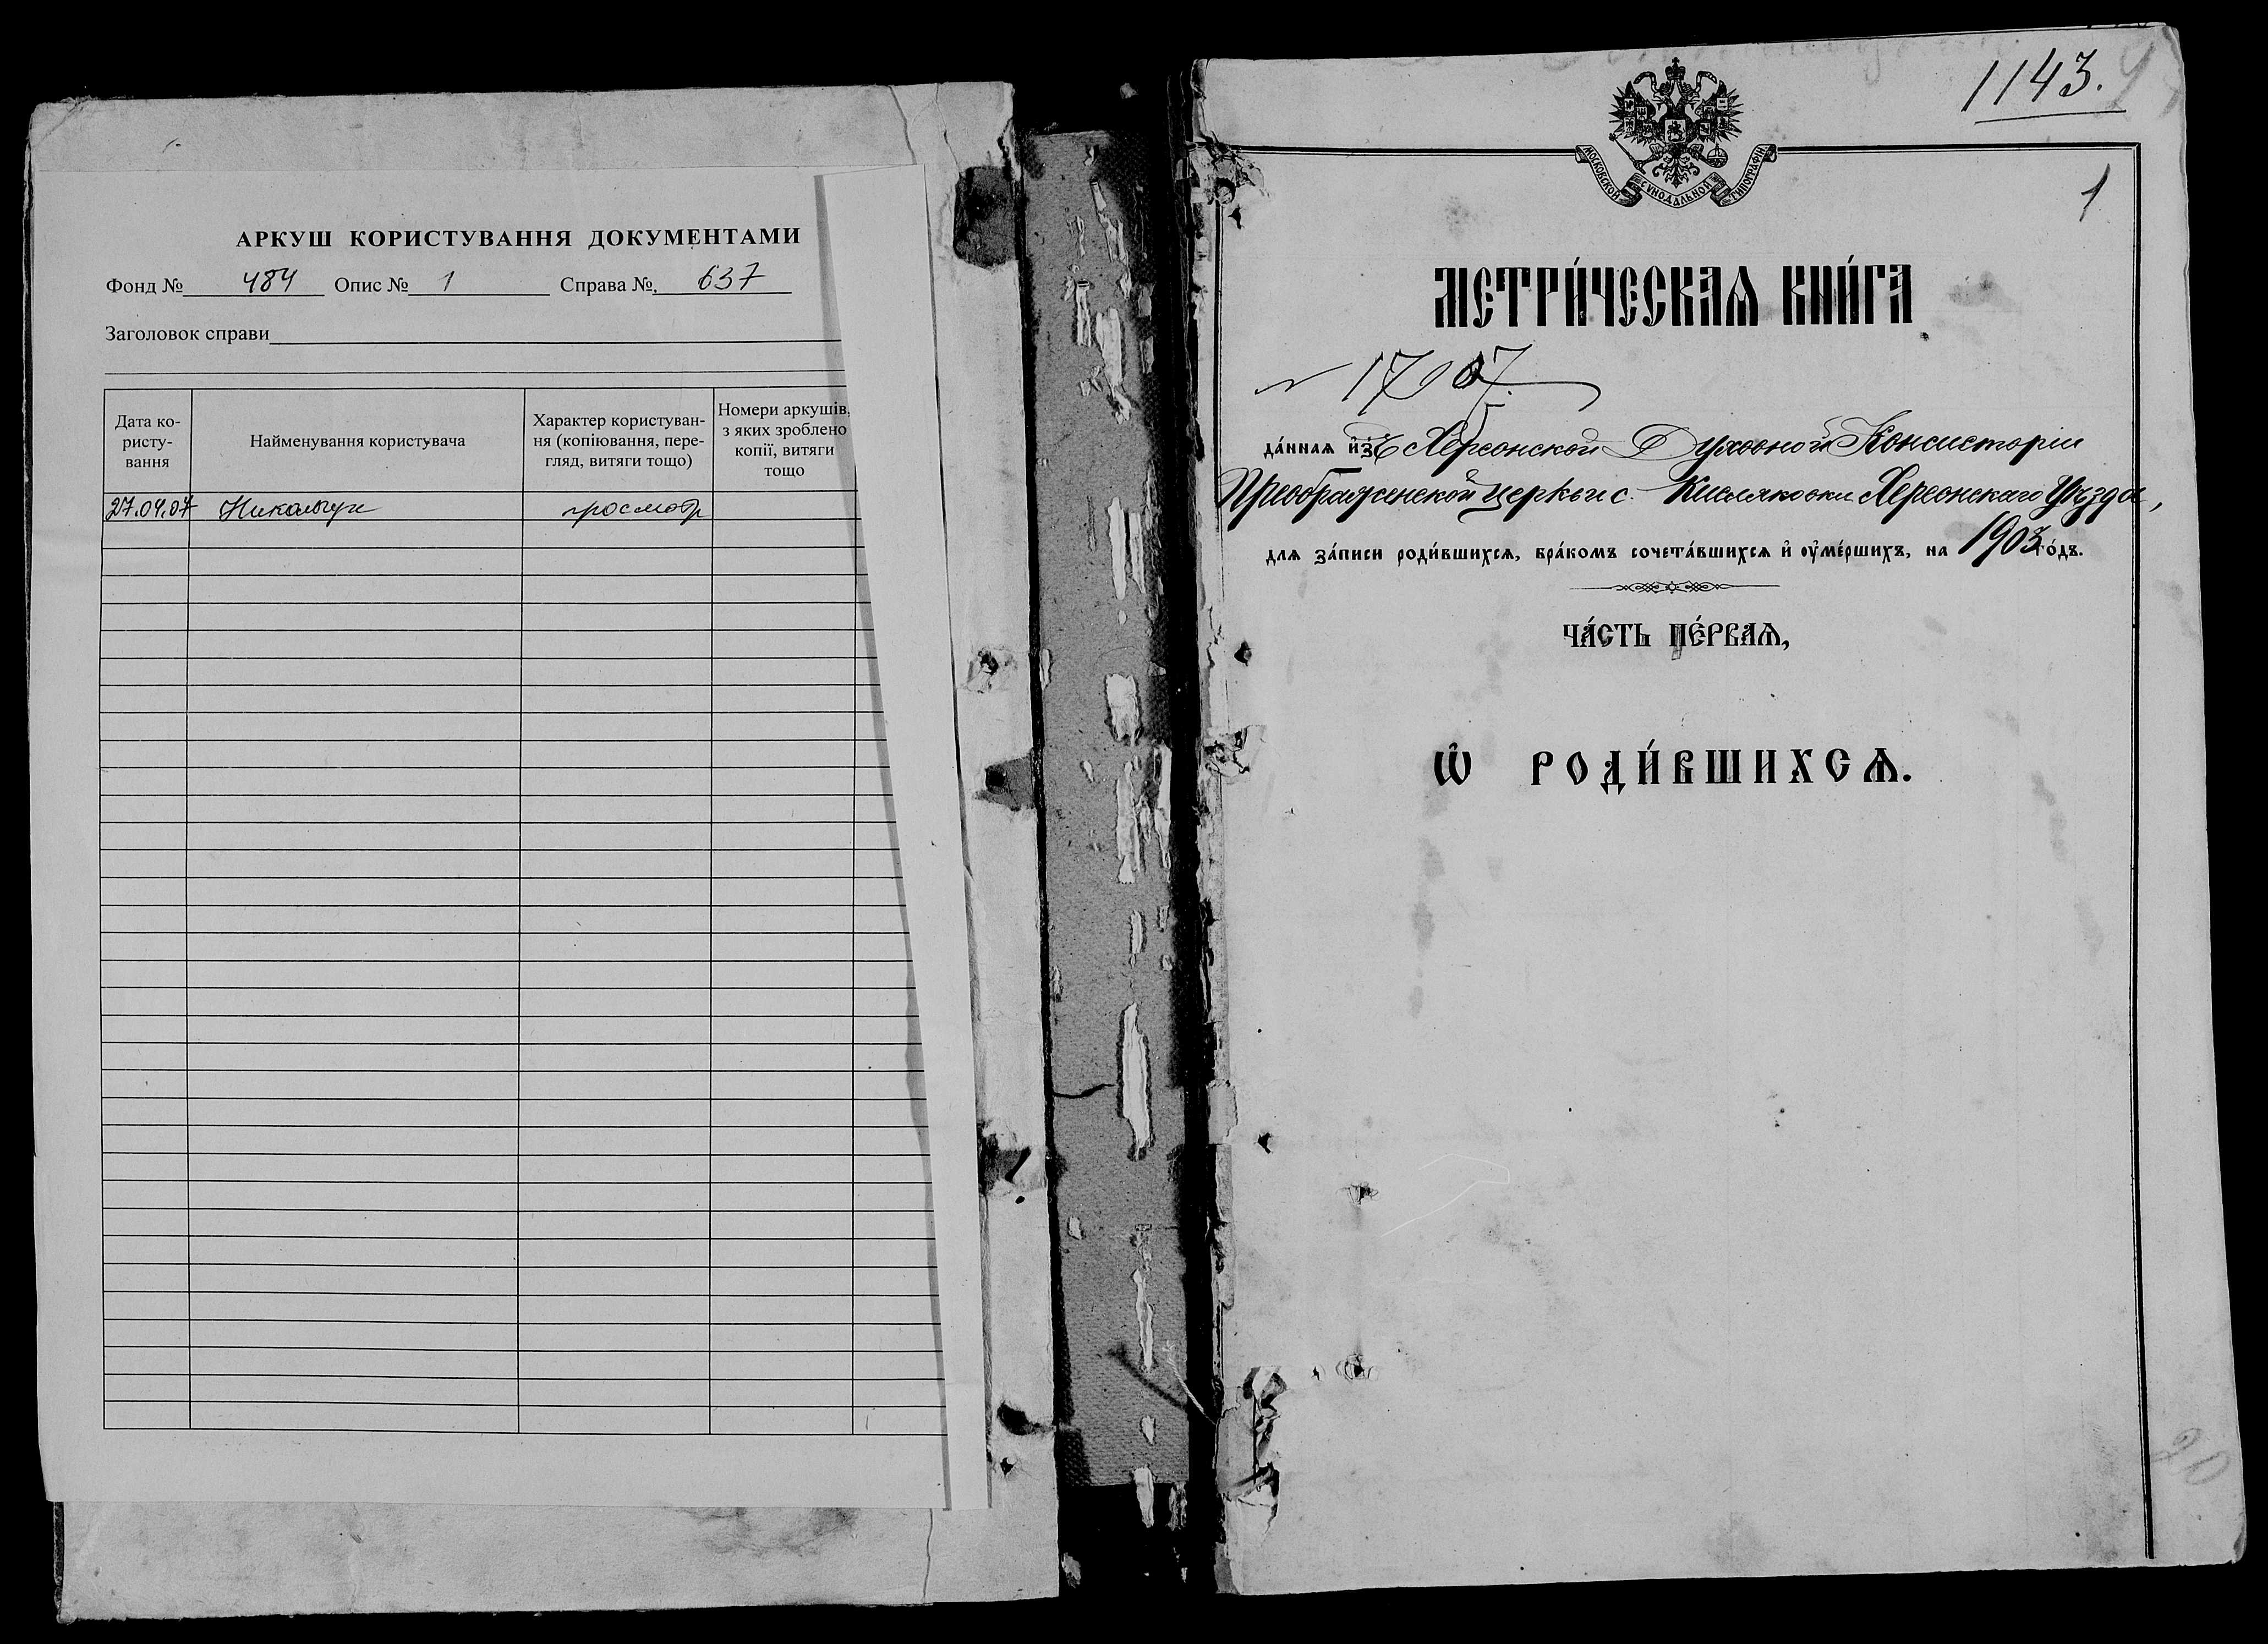 АРКУШ КОРИСТУВАННЯ ДОКУМЕНТАМИ
Фонд № 484 Опис № 1 Справа № 637
Заголовок справи
Дата ко-
ристу-
вання
Найменування користувача
Характер користуван-
ня (копіювання, пере-
гляд, витяги тощо)
Номери аркушів,
з яких зроблено
копії, витяги
тощо
27.04.07 просмотр
1143.
МОСКОВСКОЙ СѴНОДАЛЬНОЙ ТИПОГРАФІИ
1
МЕТРИ́ЧЕСКАѦ КНИ́ГА
да́нная и҆зъ Херсонской Духовной Консисторіи
Преображенской церкви с. Кисляковки Херсонскаго Уѣзда,
для за́писи роди́вшихсѧ, бра́комъ сочета́вшихсѧ и҆ оу҆ме́ршихъ, на 1903 го́дъ.
ЧА́СТЬ ПЕ́РВАѦ,
Ѡ҆ РОДИ́ВШИХСѦ.